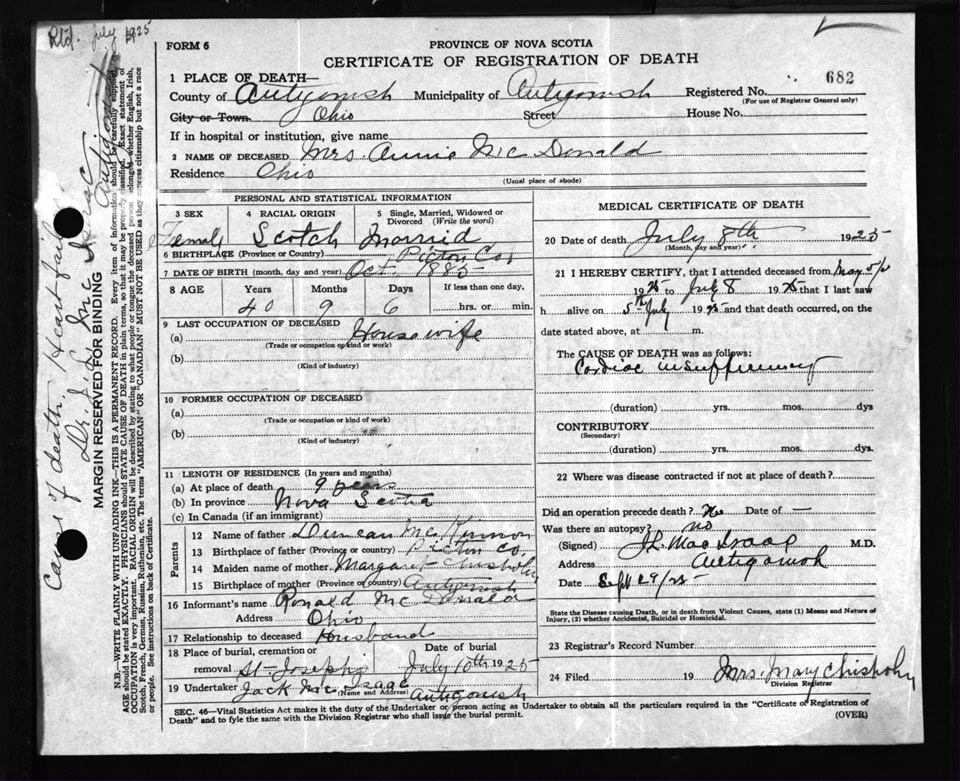 Rtd. July 1925
FORM 6
PROVINCE OF NOVA SCOTIA
CERTIFICATE OF REGISTRATION OF DEATH
1 PLACE OF DEATH—
County of Antigonish Municipality of Antigonish Registered No. 682
(For use of Registrar General only)
City or Town. Ohio Street House No.
If in hospital or institution, give name
2 NAME OF DECEASED Mrs Annie Mc Donald
Residence Ohio
(Usual place of abode)
PERSONAL AND STATISTICAL INFORMATION
3 SEX 4 RACIAL ORIGIN 5 Single, Married, Widowed or Divorced (Write the word)
Female Scotch Married
6 BIRTHPLACE (Province or Country) Pictou Co.
7 DATE OF BIRTH (month, day and year) Oct. 1885
8 AGE Years Months Days If less than one day,
40 9 6 hrs. or min.
9 LAST OCCUPATION OF DECEASED
(a) Housewife
(Trade or occupation or kind or work)
(b)
(Kind of industry)
10 FORMER OCCUPATION OF DECEASED
(a)
(Trade or occupation or kind of work)
(b)
(Kind of industry)
11 LENGTH OF RESIDENCE (In years and months)
(a) At place of death 9 years
(b) In province Nova Scotia
(c) In Canada (if an immigrant)
Parents
12 Name of father Duncan Mc Kinnon
13 Birthplace of father (Province or country) Pictou Co.
14 Maiden name of mother Margaret Chisholm
15 Birthplace of mother (Province or country) Antigonish
16 Informant's name Ronald Mc Donald
Address Ohio
17 Relationship to deceased Husband
18 Place of burial, cremation or removal St. Josephs Date of burial July 10th 1925
19 Undertaker Jack Mc Isaac Antigonish
(Name and Address)
MEDICAL CERTIFICATE OF DEATH
20 Date of death July 8th 1925
(Month, day and year)
21 I HEREBY CERTIFY, that I attended deceased from May
1925 to July 8 1925 that I last saw
h alive on 5th July 1925 and that death occurred, on
date stated above, at m.
The CAUSE OF DEATH was as follows:
Cardiac insufficiency
(duration) yrs. mos. dys
CONTRIBUTORY
(Secondary)
(duration) yrs. mos. dys
22 Where was disease contracted if not at place of death?
Did an operation precede death? No Date of —
Was there an autopsy? no
(Signed) J.L. MacIsaac M.D.
Address Antigonish
Date Sept 29/25
State the Disease causing Death, or in death from Violent Causes, state (1) Means and Nature of
Injury, (2) whether Accidental, Suicidal or Homicidal.
23 Registrar's Record Number
24 Filed 19 Mrs. May Chisholm
Division Registrar
SEC. 46—Vital Statistics Act makes it the duty of the Undertaker or person acting as Undertaker to obtain all the particulars required in the "Certificate of Registration of
Death" and to fyle the same with the Division Registrar who shall issue the burial permit.
(OVER)
Cause of death. Heart failure
Dr. J. L. McIsaac
Antigonish
MARGIN RESERVED FOR BINDING
N.B.—WRITE PLAINLY WITH UNFADING INK—THIS IS A PERMANENT RECORD. Every item of information should be carefully supplied.
AGE should be stated EXACTLY. PHYSICIANS should STATE CAUSE OF DEATH in plain terms, so that it may be properly classified. Exact statement of
OCCUPATION is very important. RACIAL ORIGIN will be described by stating to what people or tongue the deceased person belonged whether English, Irish,
Scotch, French, German, Russian, Ruthenian, etc. The terms "AMERICAN" OR "CANADIAN" MUST NOT BE USED as they express citizenship but not a race
or people. See instructions on back of Certificate.